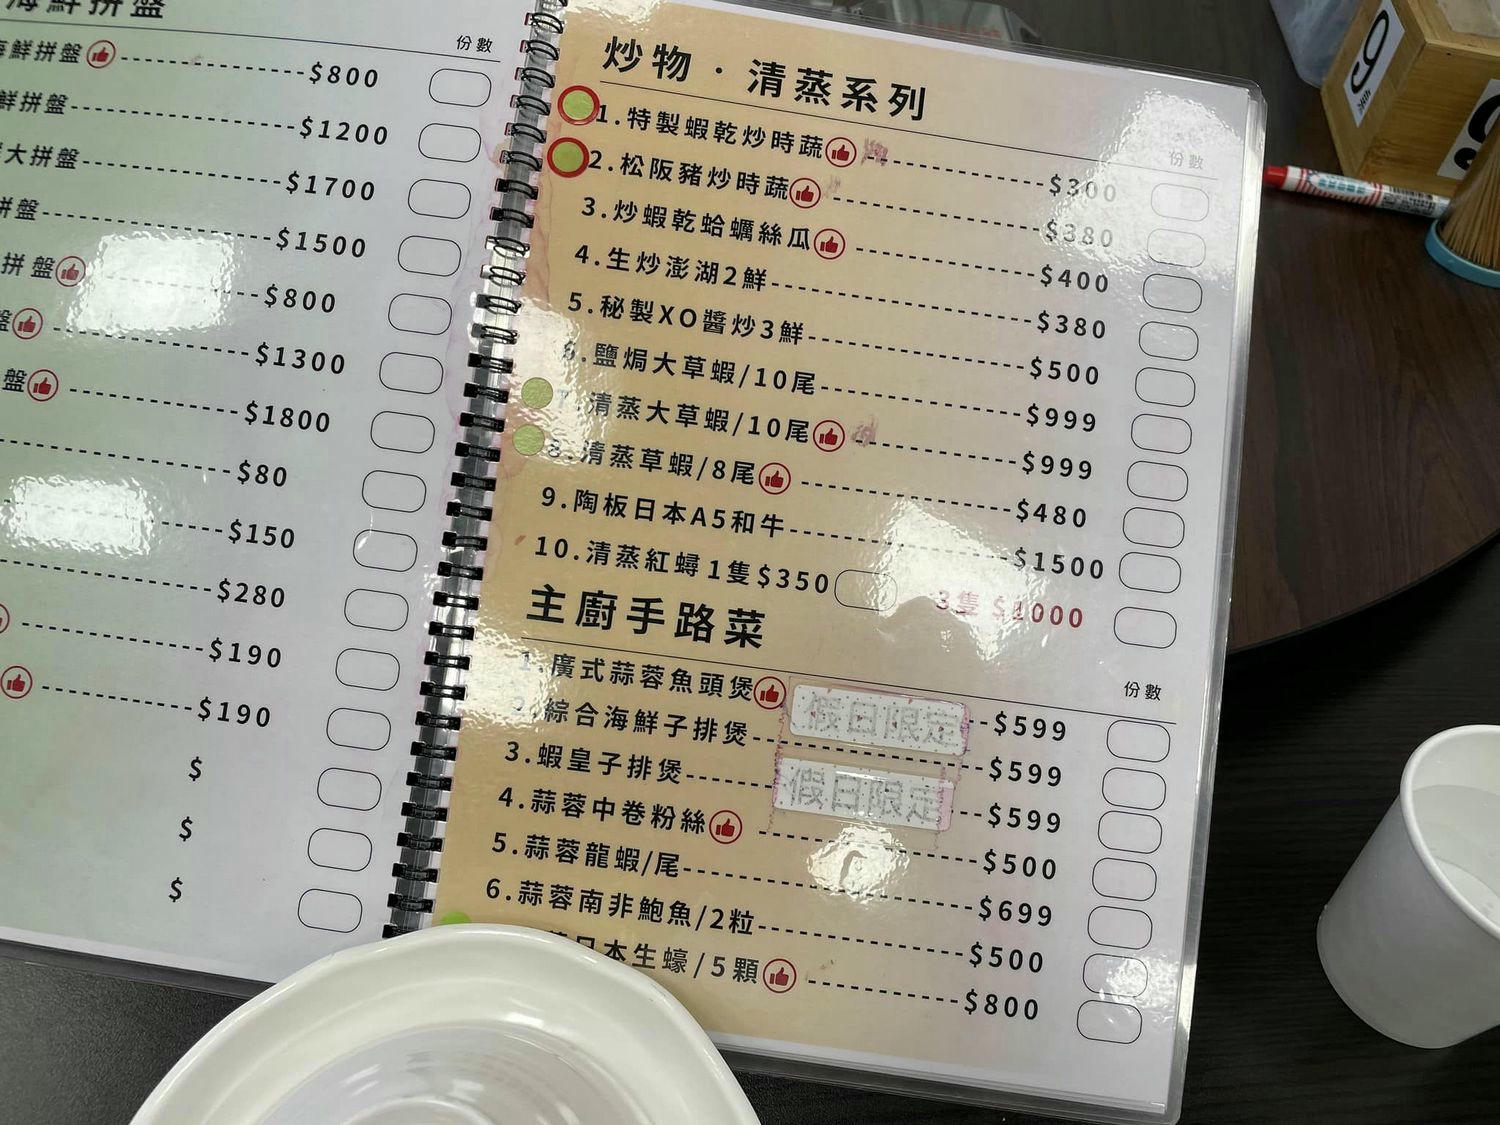 海鮮拼盤
份數
海鮮拼盤 $800
鮮拼盤 $1200
大拼盤 $1700
拼盤 $1500
拼盤 $800
盤 $1300
盤 $1800
$80
$150
$280
$190
$190
$
$
$
炒物·清蒸系列
份數
1.特製蝦乾炒時蔬 $300
2.松阪豬炒時蔬 $380
3.炒蝦乾蛤蠣絲瓜 $400
4.生炒澎湖2鮮 $380
5.秘製XO醬炒3鮮 $500
6.鹽焗大草蝦/10尾 $999
7.清蒸大草蝦/10尾 $999
8.清蒸草蝦/8尾 $480
9.陶板日本A5和牛 $1500
10.清蒸紅蟳1隻$350 3隻 $1000
主廚手路菜
份數
1.廣式蒜蓉魚頭煲 假日限定 $599
2.綜合海鮮子排煲 $599
3.蝦皇子排煲 假日限定 $599
4.蒜蓉中卷粉絲 $500
5.蒜蓉龍蝦/尾 $699
6.蒜蓉南非鮑魚/2粒 $500
日本生蠔/5顆 $800
9